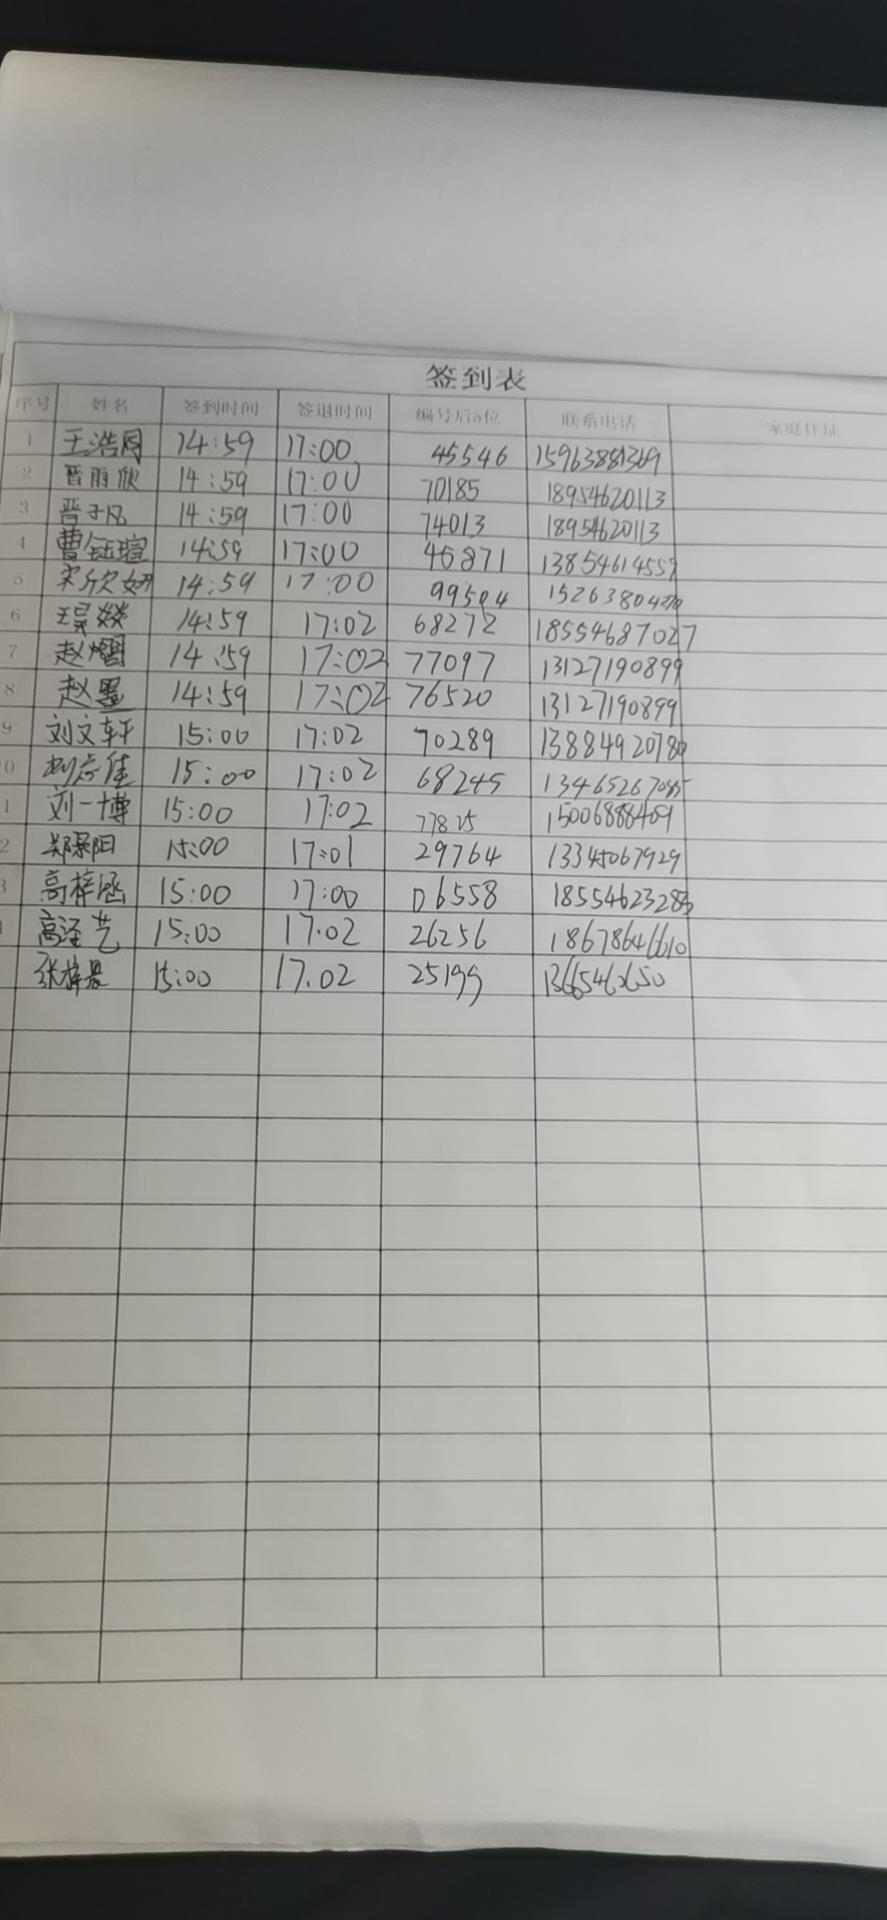 签到表
序号 姓名 签到时间 签退时间 编号后5位 联系电话 家庭住址
1 王浩 14:59 17:00 45546 15963881369
2 晋雨欣 14:59 17:00 70185 18954620113
3 晋子凡 14:59 17:00 74013 18954620113
4 曹钰瑄 14:59 17:00 45871 13854614559
5 宋欣妍 14:59 17:00 99504
6 14:59 17:02 68272 18554687027
7 赵熠 14:59 17:02 77097 13127190899
8 赵墨 14:59 17:02 76520 13127190899
9 刘文轩 15:00 17:02 70289 13884920780
0 15:00 17:02 68245
1 刘一博 15:00 17:02 77825
2 郑景阳 15:00 17:01 29764 13345067929
3 高梓涵 15:00 17:00 06558 18554623283
高泽艺 15:00 17.02 26256 18678646610
张梓晨 15:00 17.02 25199